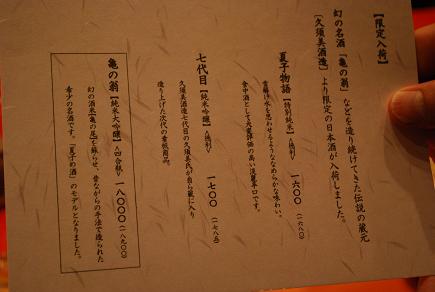 【限定入荷】
幻の名酒「亀の翁」などを造り続けてきた伝説の蔵元
〔久須美酒造〕より限定の日本酒が入荷しました。
夏子物語【特別純米】〈徳利〉 一六〇〇（一六八〇）
雪解け水を思わせるようななめらかな味わい。
食中酒として大変評価の高い淡麗辛口です。
七代目【純米吟醸】〈徳利〉 一七〇〇（一七八五）
久須美酒造七代目の久須美氏が自ら蔵に入り
造り上げた次代の看板商品。
亀の翁【純米大吟醸】〈四合瓶〉 一八〇〇〇（一八九〇〇）
幻の酒米【亀の尾】を蘇らせ、昔ながらの手法で造られた
希少の名酒です。「夏子の酒」のモデルとなりました。